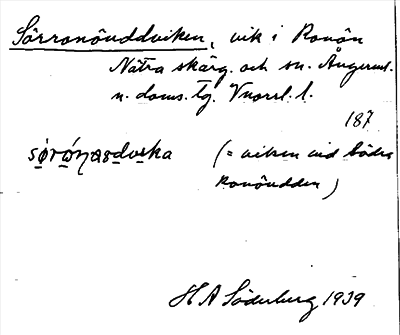 Sörronöuddviken, vik i Ronön
Nätra skärg. och sn. Ångerml.
n. doms. tg. Vnorrl. l.
187
(= viken vid södra
Ronöudden)
H A Söderberg 1939